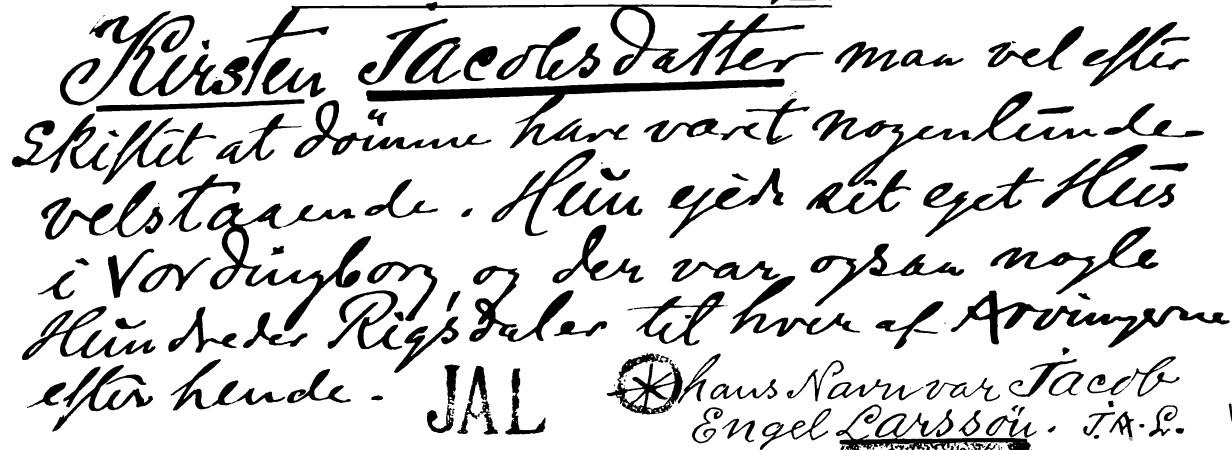 Kirsten Jacobsdatter maa vel efter
Skiftet at dömme have været nogenlunde
velstaaende. Hun ejede sit eget Hus
i Vordingborg, og der var ogsaa nogle
Hundreder Rigsdaler til hver af Arvingerne
efter hende. JAL
hans Navn var Jacob
Engel Larssön. J.A.L.